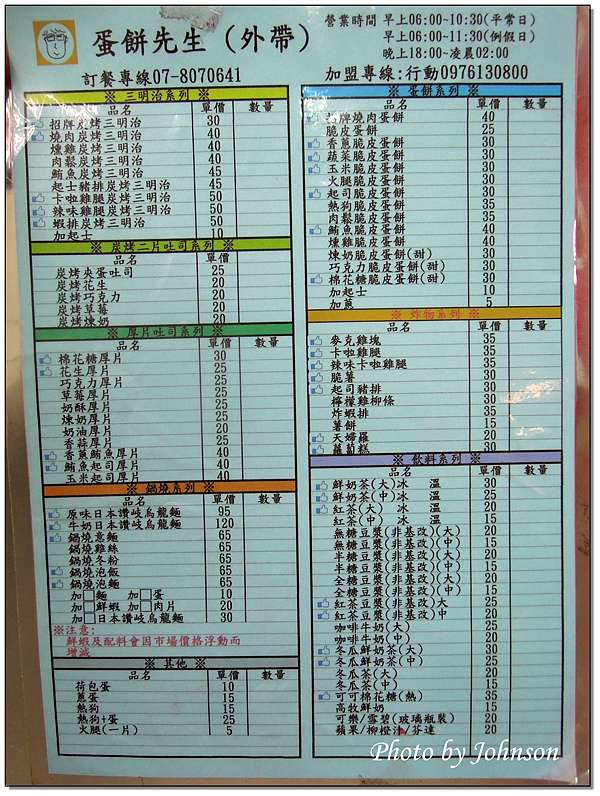 蛋餅先生（外帶）
營業時間 早上06:00~10:30(平常日)
早上06:00~11:30(例假日)
晚上18:00~凌晨02:00
訂餐專線07-8070641
加盟專線:行動0976130800
※ 三明治系列 ※
品名 單價 數量
招牌炭烤三明治 30
燒肉炭烤三明治 40
燻雞炭烤三明治 40
肉鬆炭烤三明治 40
鮪魚炭烤三明治 45
起士豬排炭烤三明治 45
卡啦雞腿炭烤三明治 50
辣味雞腿炭烤三明治 50
蝦排炭烤三明治 50
加起士 10
※ 炭烤二片吐司系列 ※
品名 單價 數量
炭烤夾蛋吐司 25
炭烤花生 20
炭烤巧克力 20
炭烤草莓 20
炭烤煉奶 20
※ 厚片吐司系列 ※
品名 單價 數量
棉花糖厚片 30
花生厚片 25
巧克力厚片 25
草莓厚片 25
奶酥厚片 25
煉奶厚片 25
奶油厚片 20
香蒜厚片 25
香蔥鮪魚厚片 40
鮪魚起司厚片 40
玉米起司厚片 40
※ 鍋燒系列 ※
品名 單價 數量
原味日本讚岐烏龍麵 95
牛奶日本讚岐烏龍麵 120
鍋燒意麵 65
鍋燒雞絲 65
鍋燒冬粉 65
鍋燒泡飯 65
鍋燒泡麵 65
加□麵 加□蛋 10
加□鮮蝦 加□肉片 20
加□日本讚岐烏龍麵 30
※注意:
鮮蝦及配料會因市場價格浮動而
增減
※ 其他 ※
品名 單價 數量
荷包蛋 10
蔥蛋 15
熱狗 15
熱狗+蛋 25
火腿(一片) 5
※ 蛋餅系列 ※
品名 單價 數量
招牌燒肉蛋餅 40
脆皮蛋餅 25
香蔥脆皮蛋餅 30
蔬菜脆皮蛋餅 30
玉米脆皮蛋餅 30
火腿脆皮蛋餅 30
起司脆皮蛋餅 30
熱狗脆皮蛋餅 35
肉鬆脆皮蛋餅 35
鮪魚脆皮蛋餅 40
燻雞脆皮蛋餅 40
煉奶脆皮蛋餅(甜) 30
巧克力脆皮蛋餅(甜) 30
棉花糖脆皮蛋餅(甜) 30
加起士 10
加蔥 5
※ 炸物系列 ※
品名 單價 數量
麥克雞塊 35
卡啦雞腿 35
辣味卡啦雞腿 35
脆薯 30
起司豬排 30
檸檬雞柳條 30
炸蝦排 35
薯餅 15
天婦羅 20
蘿蔔糕 30
※ 飲料系列 ※
品名 單價 數量
鮮奶茶(大)冰 溫 30
鮮奶茶(中)冰 溫 25
紅茶(大) 冰 溫 20
紅茶(中) 冰 溫 15
無糖豆漿(非基改)(大) 20
無糖豆漿(非基改)(中) 15
半糖豆漿(非基改)(大) 20
半糖豆漿(非基改)(中) 15
全糖豆漿(非基改)(大) 20
全糖豆漿(非基改)(中) 15
紅茶豆漿(非基改)大 25
紅茶豆漿(非基改)中 20
咖啡牛奶(大) 25
咖啡牛奶(中) 20
冬瓜鮮奶茶(大) 30
冬瓜鮮奶茶(中) 25
冬瓜茶(大) 20
冬瓜茶(中) 15
可可棉花糖(熱) 35
高牧鮮奶 15
可樂/雪碧(玻璃瓶裝) 20
蘋果/柳橙汁/芬達 20
Photo by Johnson